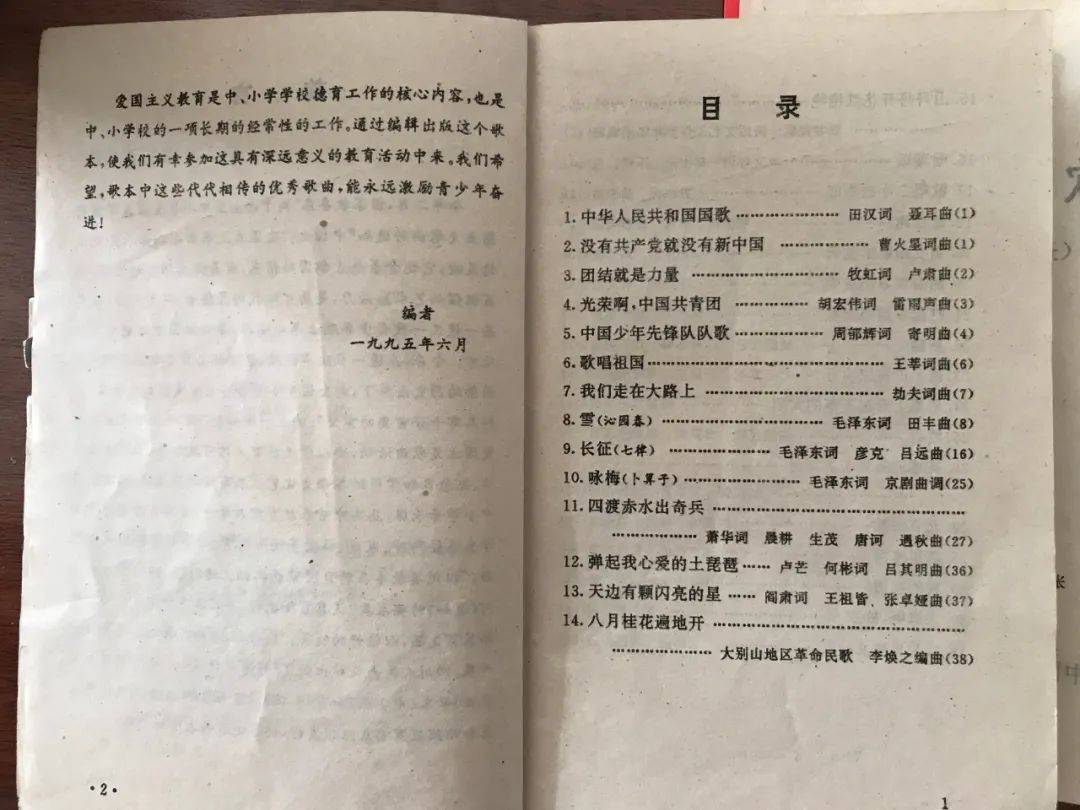 爱国主义教育是中、小学学校德育工作的核心内容,也是
中、小学校的一项长期的经常性的工作。通过编辑出版这个歌
本,使我们有幸参加这具有深远意义的教育活动中来。我们希
望,歌本中这些代代相传的优秀歌曲,能永远激励青少年奋
进!
编者
一九九五年六月
·2·
目 录
1.中华人民共和国国歌 ·················· 田汉词 聂耳曲(1)
2.没有共产党就没有新中国 ·················· 曹火星词曲(1)
3.团结就是力量 ·················· 牧虹词 卢肃曲(2)
4.光荣啊,中国共青团 ·················· 胡宏伟词 雷雨声曲(3)
5.中国少年先锋队队歌 ·················· 周郁辉词 寄明曲(4)
6.歌唱祖国 ·················· 王莘词曲(6)
7.我们走在大路上 ·················· 劫夫词曲(7)
8.雪(沁园春) ·················· 毛泽东词 田丰曲(8)
9.长征(七律) ·················· 毛泽东词 彦克 吕远曲(16)
10.咏梅(卜算子) ·················· 毛泽东词 京剧曲调(25)
11.四渡赤水出奇兵 ··················
·················· 萧华词 晨耕 生茂 唐诃 遇秋曲(27)
12.弹起我心爱的土琵琶 ······ 卢芒 何彬词 吕其明曲(36)
13.天边有颗闪亮的星 ······ 阎肃词 王祖皆、张卓娅曲(37)
14.八月桂花遍地开 ··················
·················· 大别山地区革命民歌 李焕之编曲(38)
1